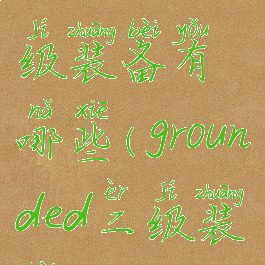 jí zhuāng bèi yǒu
级装备有
nǎ xiē
哪些(groun
èr jí zhuāng
ded二级装